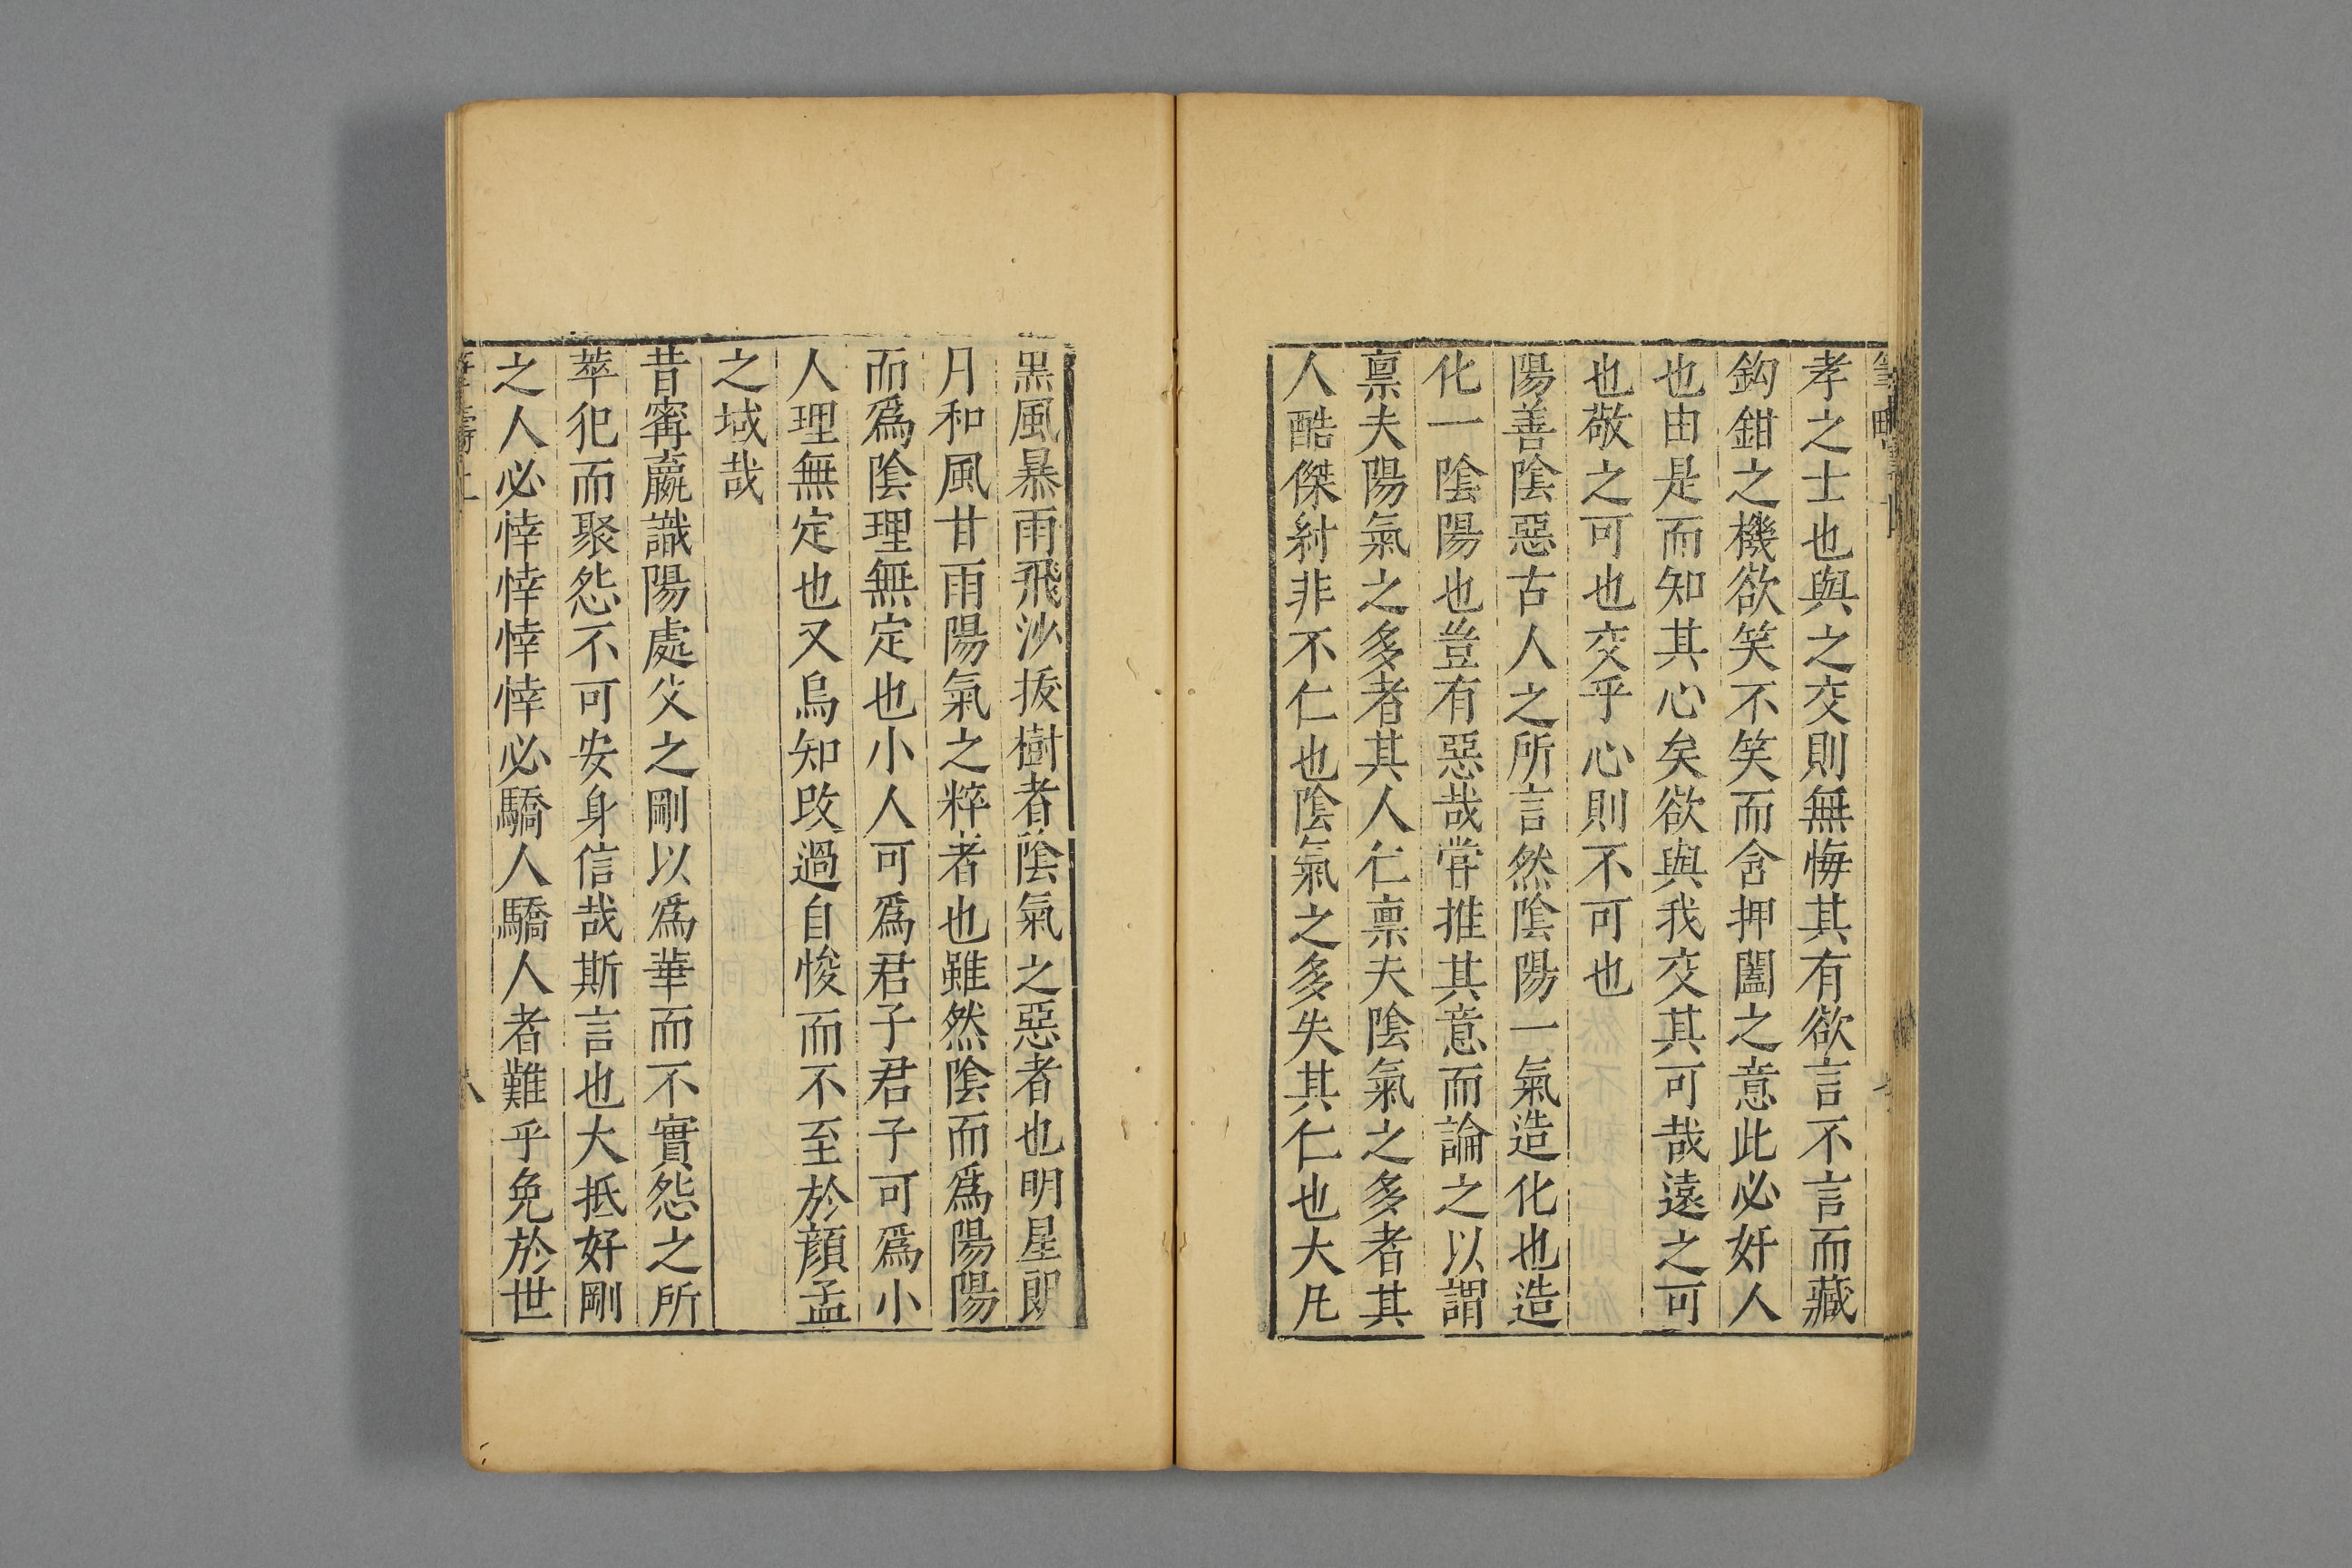 孝之士也與之交則無悔其有欲言不言而藏
鈎鉗之機欲笑不笑而含押闔之意此必奸人
也由是而知其心矣欲與我交其可哉遠之可
也敬之可也交乎心則不可也
陽善陰惡古人之所言然陰陽一氣造化也造
化一陰陽也豈有惡哉甞推其意而論之以謂
禀夫陽氣之多者其人仁禀夫陰氣之多者其
人酷傑紂非不仁也陰氣之多失其仁也大凡
黒風暴雨飛沙拔樹者陰氣之惡者也明星朗
月和風甘雨陽氣之粹者也雖然陰而爲陽陽
而爲陰理無定也小人可爲君子君子可爲小
人理無定也又烏知改過自悛而不至於顔孟
之域哉
昔甯嬴識陽處父之剛以爲華而不實怨之所
萃犯而聚怨不可安身信哉斯言也大抵好剛
之人必悻悻悻悻必驕人驕人者難乎免於世
筆疇上
八